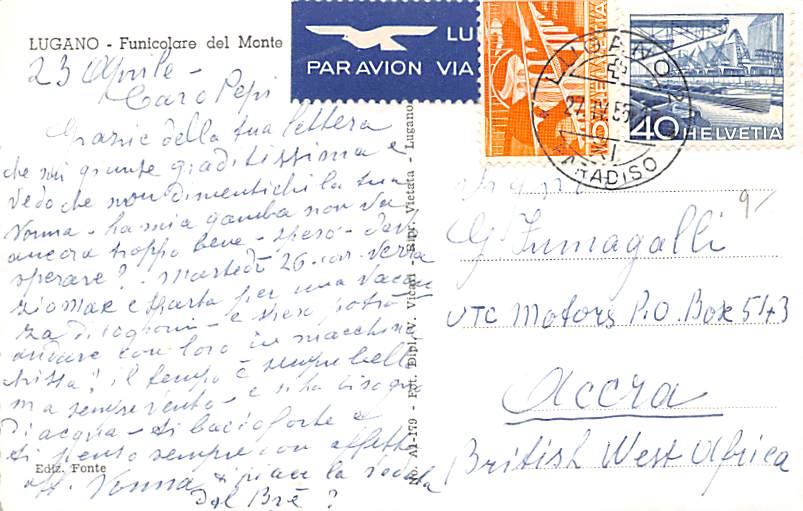 LUGANO - Funicolare del Monte
PAR AVION VIA
LU
HELVETIA
40 HELVETIA
LUGANO
PARADISO
23 Aprile -
Caro Pepi
Grazie della tua lettera
che mi giunse graditissima e
vedo che non dimentichi la tua
Nonna - la mia gamba non va
ancora troppo bene - spero - devo
sperare? Martedì 26 verrà
zio Max e Marta per una vacan
za di giorni - e spero potrò
andare con loro in macchina
il tempo è sempre bello
ma sempre vento - e si ha bisogno
d'acqua - ti bacio forte e
ti penso sempre con affetto
aff. Nonna ti piace la veduta
dal Brè?
Ediz. Fonte
No. A1-179 - Fot. Dipl. V. Vicari - Ripr. Vietata - Lugano
G. Fumagalli
UTC Motors P.O. Box 543
Accra
British West Africa
9/-